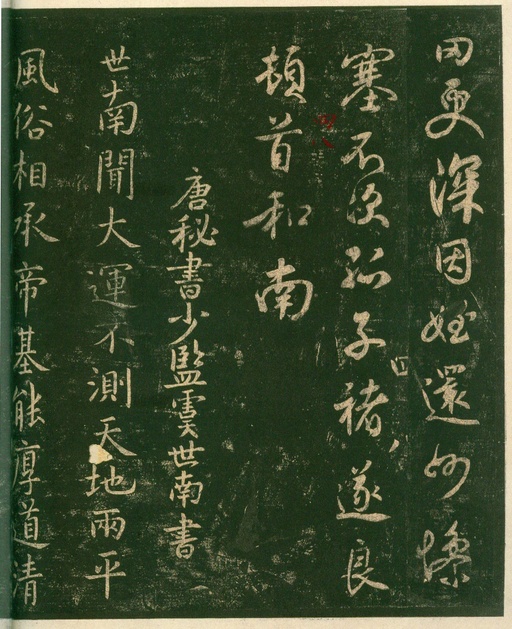 罔更深因姪還州慘
塞不次孤子褚遂良
頓首和南
唐秘書少監虞世南書
世南聞大運不測天地兩平
風俗相承帝基能厚道清